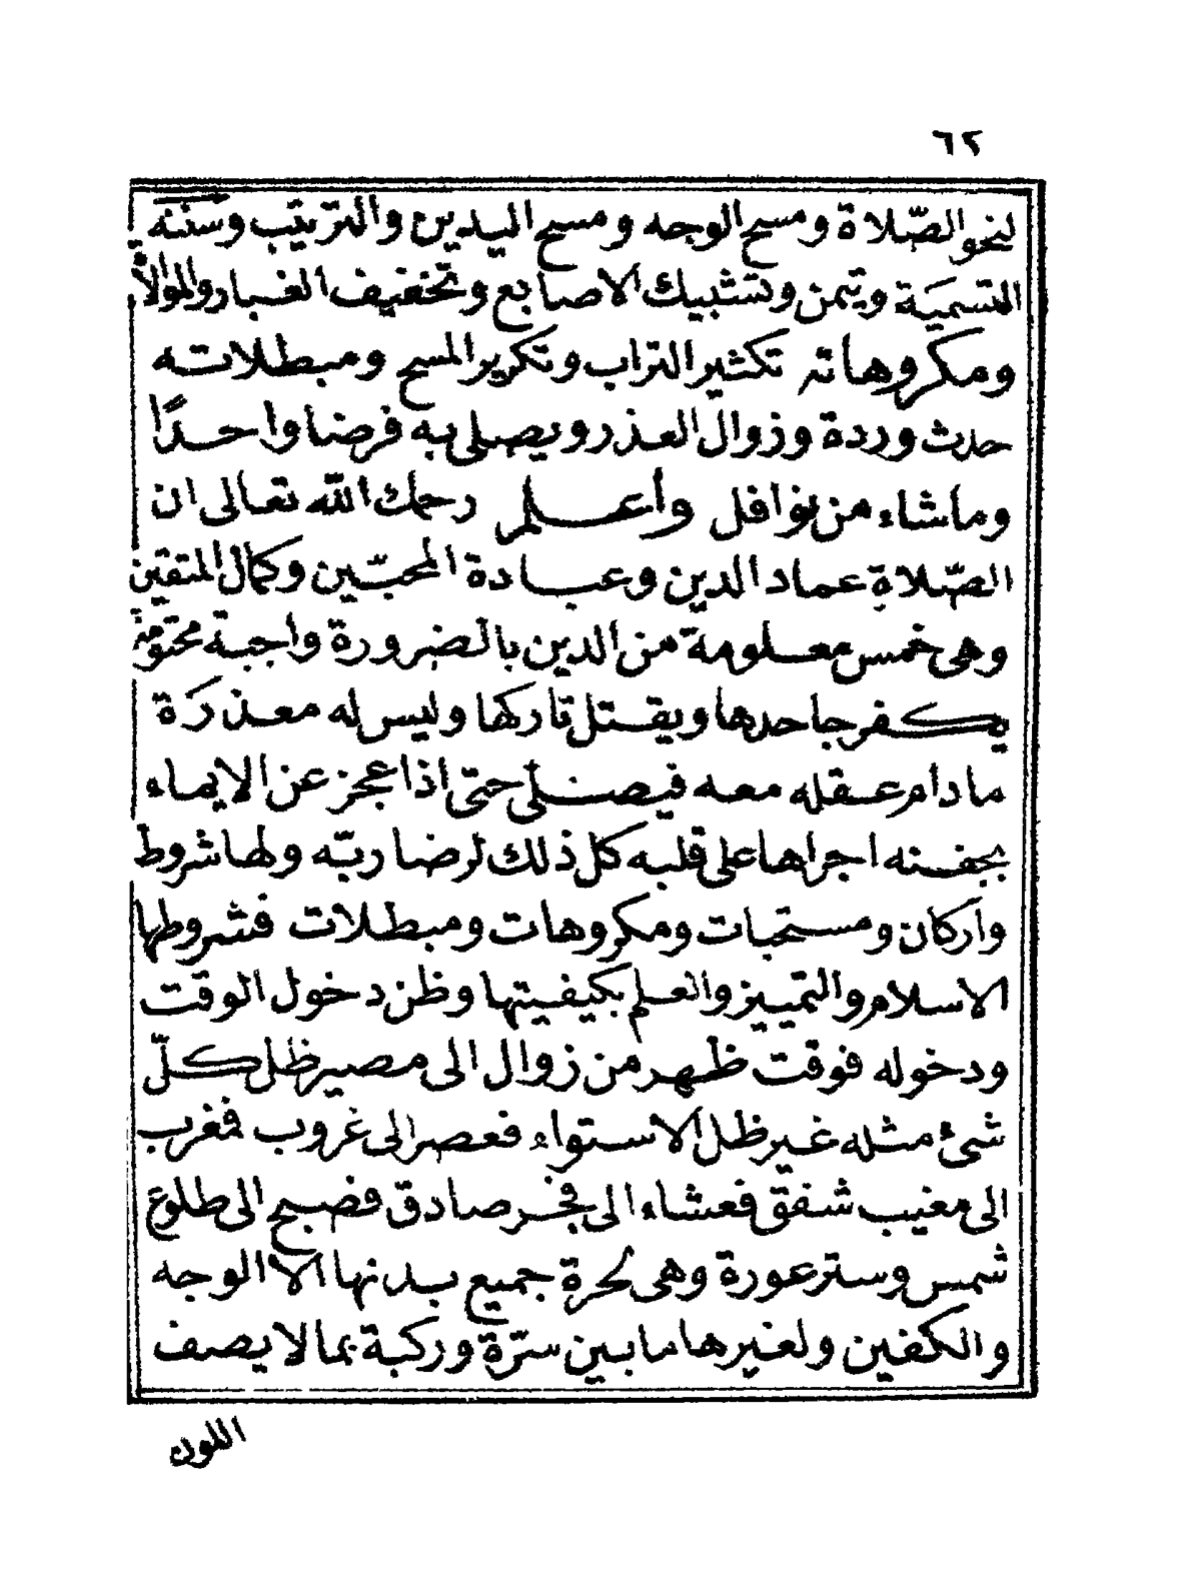 ٦٢
لنحو الصّلاة ومسح الوجه ومسح اليدين والترتيب وسننه
التسمية وتيمن وتشبيك الاصابع وتخفيف الغبار والموالاة
ومكروهاته تكثير التراب وتكرير المسح ومبطلاته
حدث وردة وزوال العذر ويصلى به فرضا واحدًا
وماشاء من نوافل وأعلم رحمك اللّه تعالى ان
الصّلاة عماد الدين وعبادة المحبّين وكمال المتقين
وهى خمس معلومة من الدين بالضرورة واجبة محتومة
يكفر جاحدها ويقتل تاركها وليس له معذرة
مادام عقله معه فيصلى حتى اذا عجز عن الايماء
بجفنه اجراها على قلبه كل ذلك لرضا ربّه ولها شروط
واركان ومستحبات ومكروهات ومبطلات فشروطها
الاسلام والتمييز والعلم بكيفيتها وظن دخول الوقت
ودخوله فوقت ظهر من زوال الى مصير ظل كلّ
شئ مثله غير ظل الاستواء فعصر الى غروب فمغرب
الى مغيب شفق فعشاء الى فجر صادق فصبح الى طلوع
شمس وستر عورة وهى لحرة جميع بدنها الا الوجه
والكفين ولغيرها مابين سرّة وركبة بما لا يصف
اللون